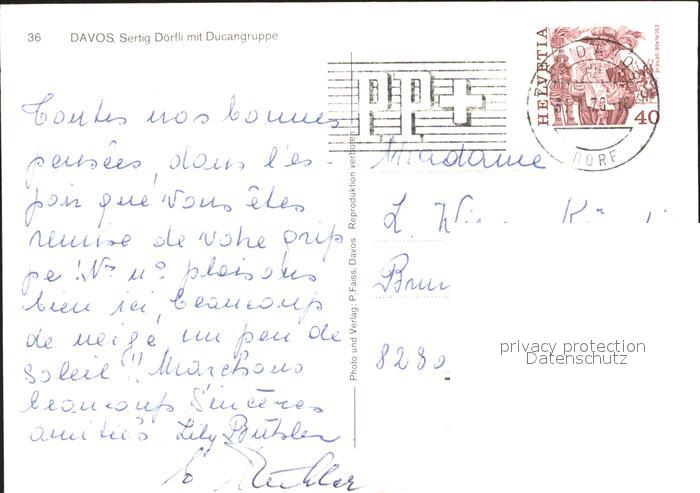 36 DAVOS, Sertig Dörfli mit Ducangruppe
HELVETIA
40
DORF
Toutes nos bonnes
pensées, dans l'es-
poir que vous êtes
remise de votre grip
pe! Ns ns plaisons
bien ici, beaucoup
de neige, un peu de
soleil!! Marchons
beaucoup. Sincères
amitiés Lily
Photo und Verlag: P. Faiss, Davos Reproduktion verboten
Madame
L.
Brun
8280
privacy protection
Datenschutz